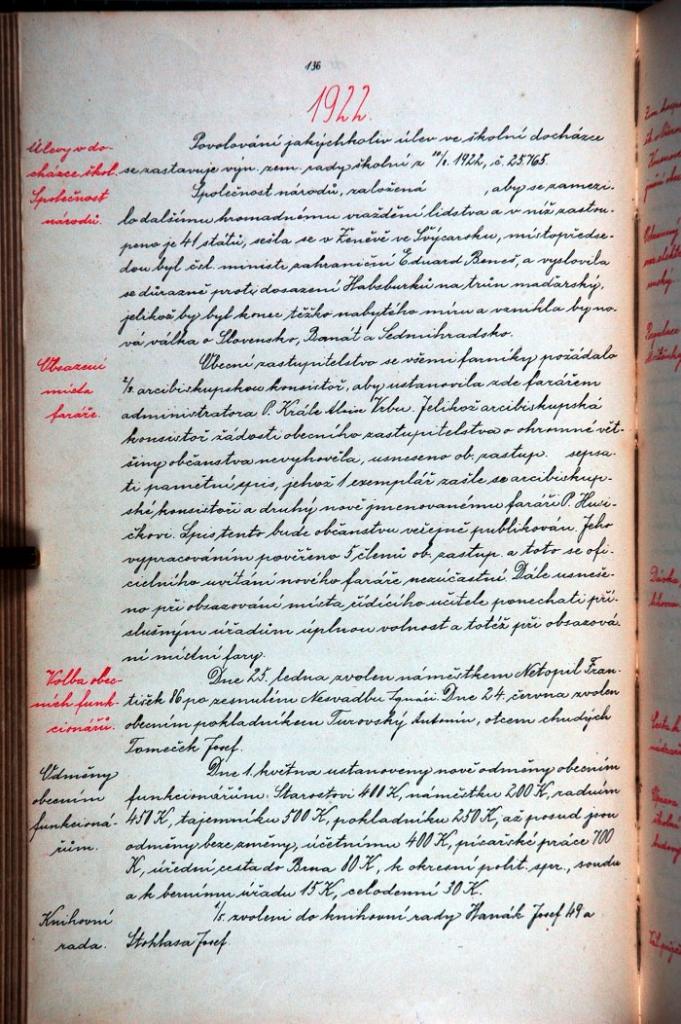 136
1922.
Úlevy v do-
cházce škol.
Povolování jakýchkoliv úlev ve školní docházce
se zastavuje výn. zem. rady školní z 1922, č. 25765.
Společnost
národů.
Společnost národů, založená , aby se zamezi-
lo dalšímu hromadnému vraždění lidstva a v níž zastou-
peno je 41 států, sešla se v Ženěvě ve Švýcarsku, místopředse-
dou byl čsl. ministr zahraniční Eduard Beneš, a vyslovila
se důrazně proti dosazení Habsburků na trůn maďarský,
jelikož by byl konec těžko nabytého míru a vznikla by no-
vá válka o Slovensko, Banát a Sedmihradsko.
Obsazení
místa
faráře.
Obecní zastupitelstvo se všemi farníky požádalo
arcibiskupskou konsistoř, aby ustanovila zde farářem
administratora P. Krále Aloise Vrbu. Jelikož arcibiskupská
konsistoř žádosti obecního zastupitelstva o ohromné vět-
šiny občanstva nevyhověla, usneseno ob. zastup. sepsa-
ti pamětní spis, jehož 1 exemplář zašle se arcibiskup-
ské konsistoři a druhý nově jmenovanému faráři P. Husič-
kovi. Spis tento bude občanstvu veřejně publikován. Jeho
vypracováním pověřeno 5 členů ob. zastup. a toto se ofi-
cielního uvítání nového faráře nezúčastní. Dále usneše-
no při obsazování místa řídícího učitele ponechati pří-
slušným úřadům úplnou volnost a totéž při obsazová-
ní místní fary.
Volba obec-
ních funk-
cionářů.
Dne 25. ledna zvolen náměstkem Netopil Fran-
tišek 86 po zesnulém Nesvadbu Ignáci. Dne 24. června zvolen
obecním pokladníkem Turovský Antonín, otcem chudých
Tomeček Josef.
Odměny
obecním
funkcioná-
řům.
Dne 1. května ustanoveny nově odměny obecním
funkcionářům: Starostovi 400 K, náměstku 200 K, radním
450 K, tajemníku 500 K, pokladníku 250 K, až posud jsou
odměny beze změny, účetnímu 400 K, písařské práce 700
K, úřední cesta do Brna 80 K, k okresní polit. spr., soudu
a k bernímu úřadu 15 K, celodenní 30 K.
Knihovní
rada.
zvoleni do knihovní rady Hanák Josef 49 a
Stohlasa Josef.